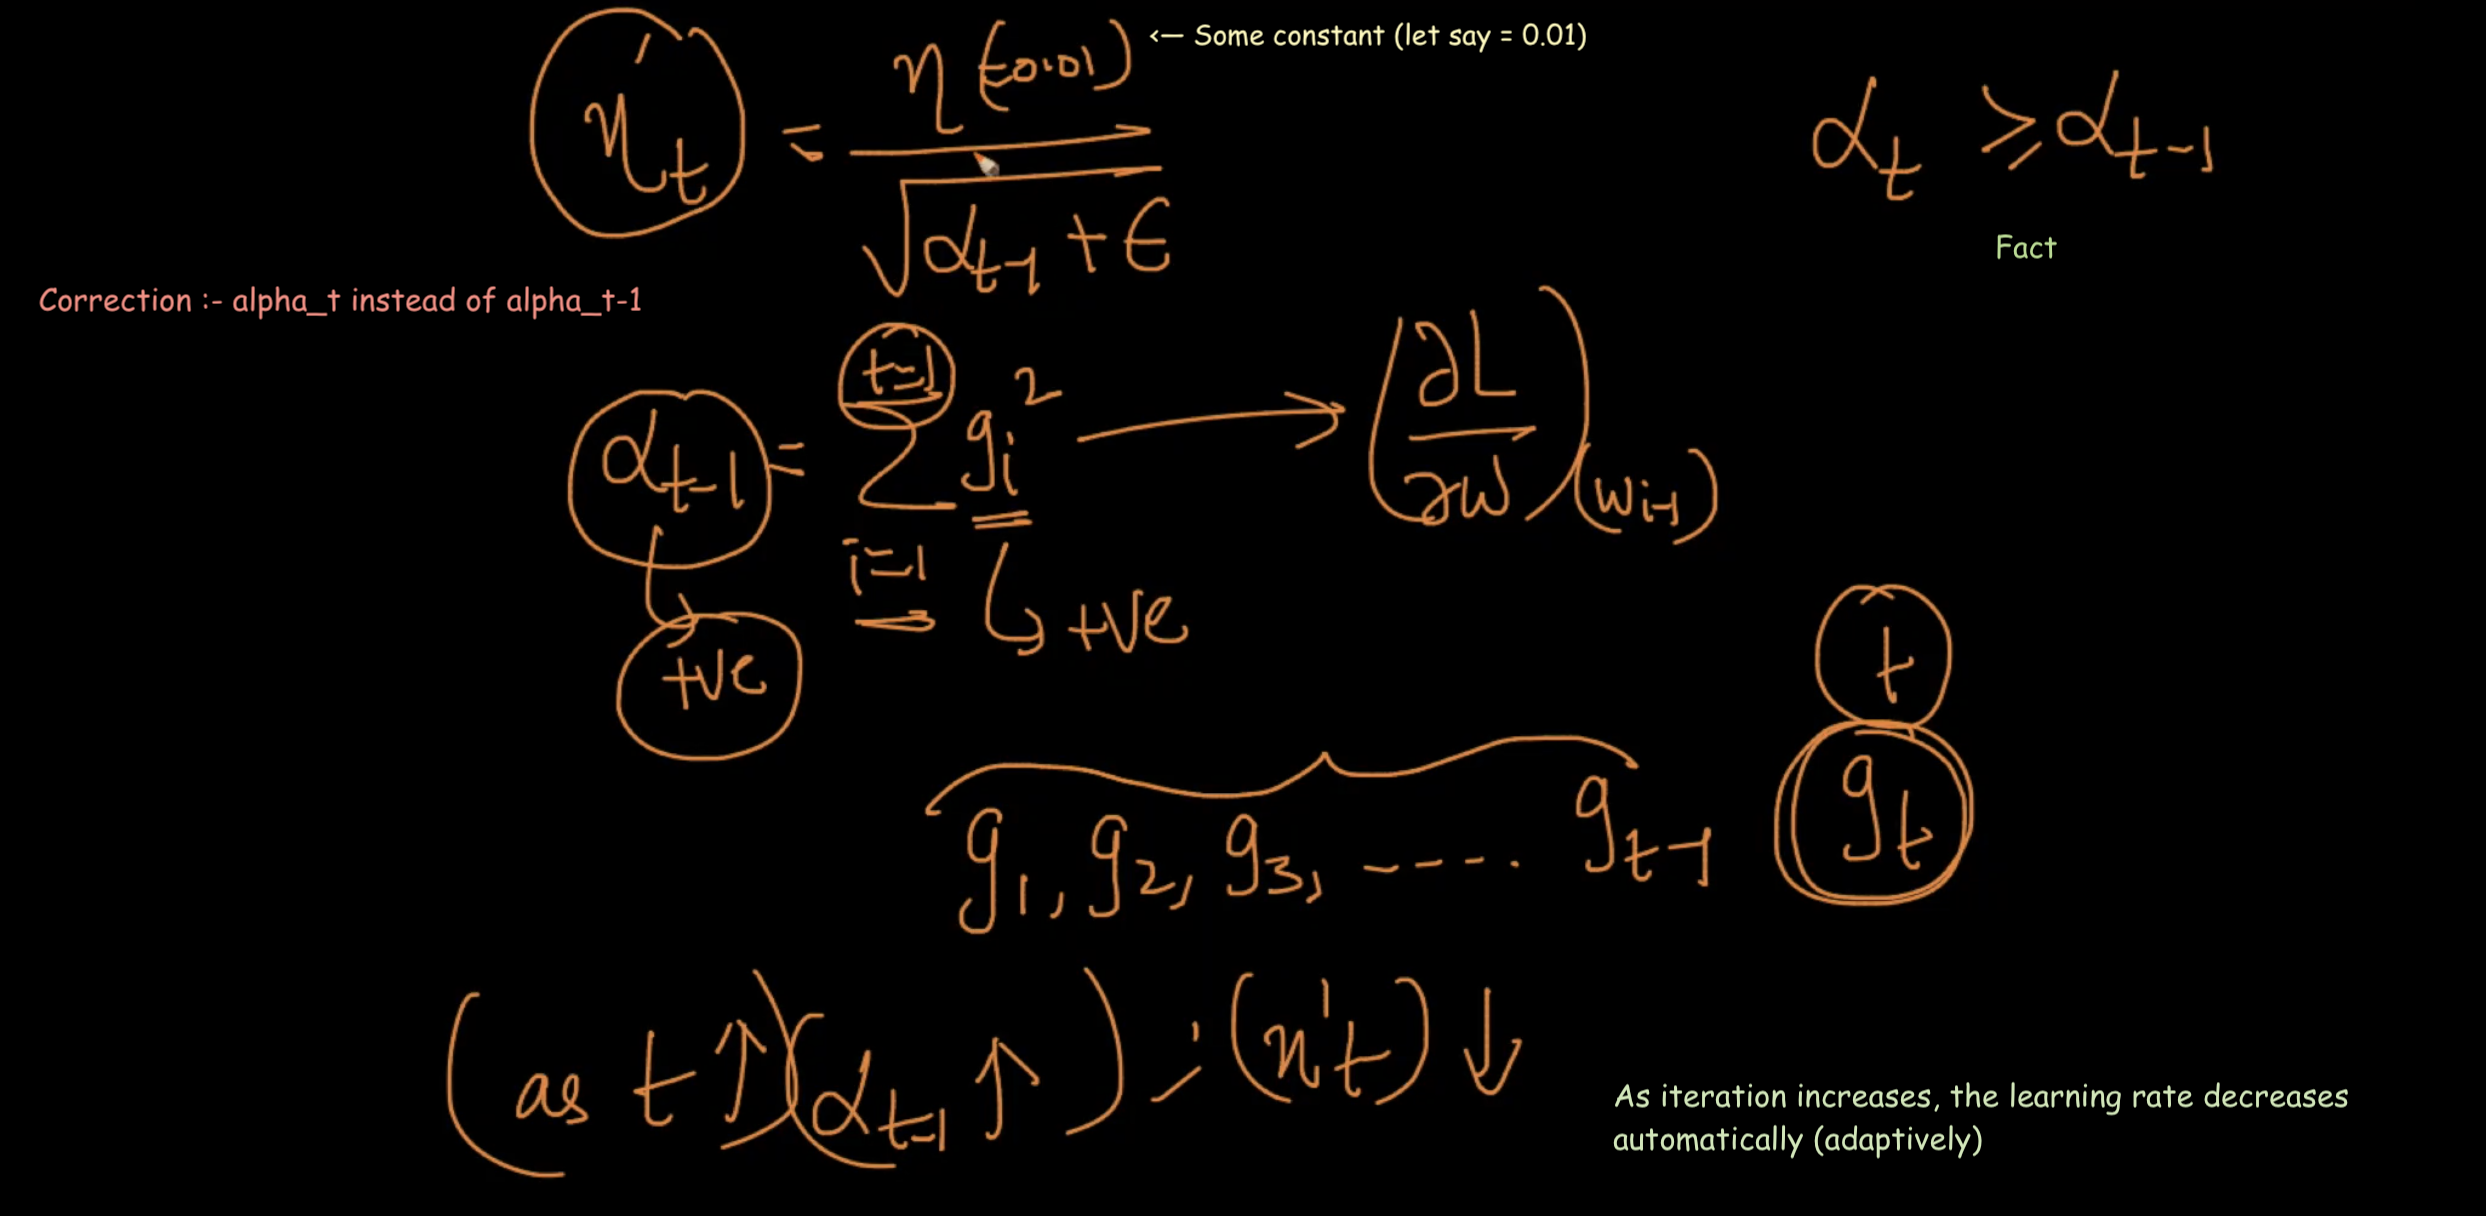 η't = η(=0.01) / √(αt-1 + ϵ)
<— Some constant (let say = 0.01)
αt ≥ αt-1
Fact
Correction :- alpha_t instead of alpha_t-1
αt-1 = Σ(i=1 → t-1) gi² → (∂L/∂w)(wi-1)
+ve
+ve
t
g1, g2, g3, ----. gt-1 gt
(as t↑)(αt-1 ↑) ; (η't) ↓
As iteration increases, the learning rate decreases
automatically (adaptively)